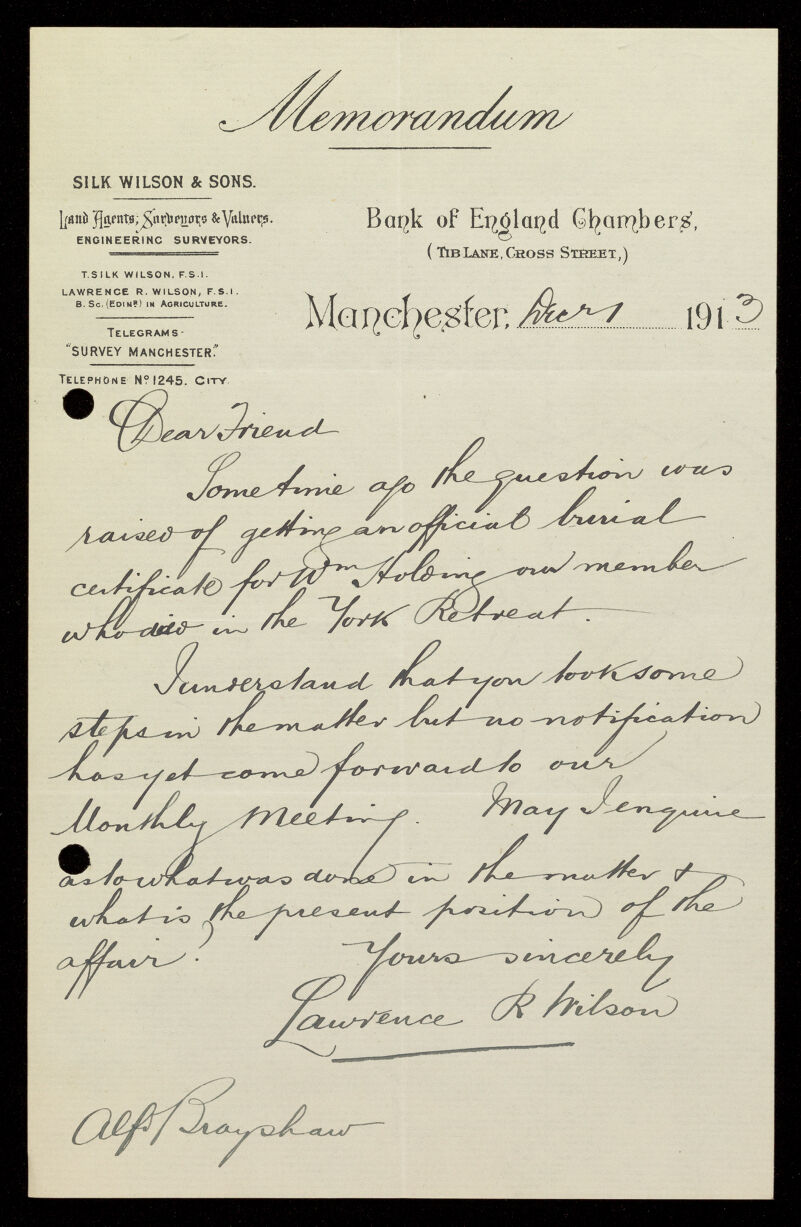 Memorandum
SILK WILSON & SONS.
Land Agents, Surveyors & Valuers.
ENGINEERING SURVEYORS.
T. SILK WILSON, F.S.I.
LAWRENCE R. WILSON, F.S.I.
B. Sc. (EDINR.) IN AGRICULTURE.
TELEGRAMS-
"SURVEY MANCHESTER."
TELEPHONE No 1245. CITY.
Bank of England Chambers,
(TIB LANE, CROSS STREET,)
Manchester, Decr 1 1913
Dear Friend
Sometime ago the question was
raised of getting an official burial
certificate for Wm Holding our member
who died in the York Retreat.
I understand that you took some
steps in the matter but no notification
has yet come forward to our
Monthly Meeting. May I enquire
as to what was done in the matter &
what is the present position of the
affair?
Yours sincerely
Lawrence R Wilson
Alfd Brayshaw